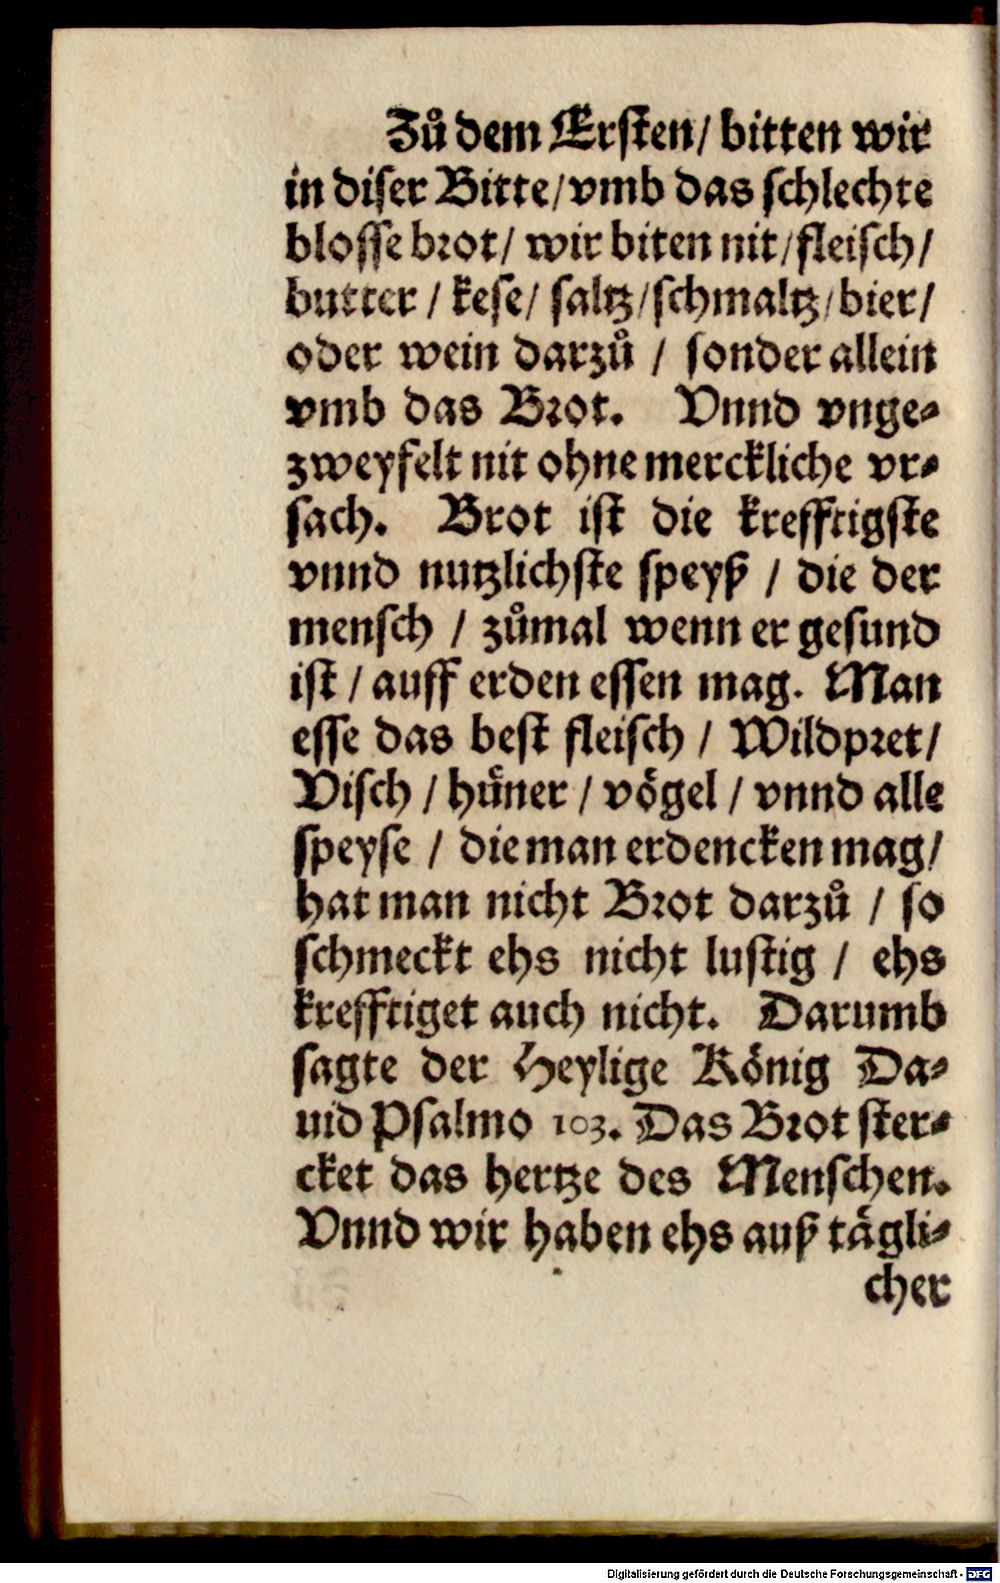 Zů dem Ersten/ bitten wir
in diser Bitte/ vmb das schlechte
blosse brot/ wir biten nit/ fleisch/
butter / kese/ saltz/ schmaltz/ bier/
oder wein darzů / sonder allein
vmb das Brot. Vnnd vnge-
zweyfelt nit ohne merckliche vr-
sach. Brot ist die krefftigste
vnnd nutzlichste speyß / die der
mensch / zůmal wenn er gesund
ist / auff erden essen mag. Man
esse das best fleisch / Wildpret/
Visch / hůner / vögel / vnnd alle
speyse / die man erdencken mag/
hat man nicht Brot darzů / so
schmeckt ehs nicht lustig / ehs
krefftiget auch nicht. Darumb
sagte der Heylige König Da-
uid Psalmo 103. Das Brot ster-
cket das hertze des Menschen.
Vnnd wir haben ehs auß tägli-
cher
Digitalisierung gefördert durch die Deutsche Forschungsgemeinschaft - DFG